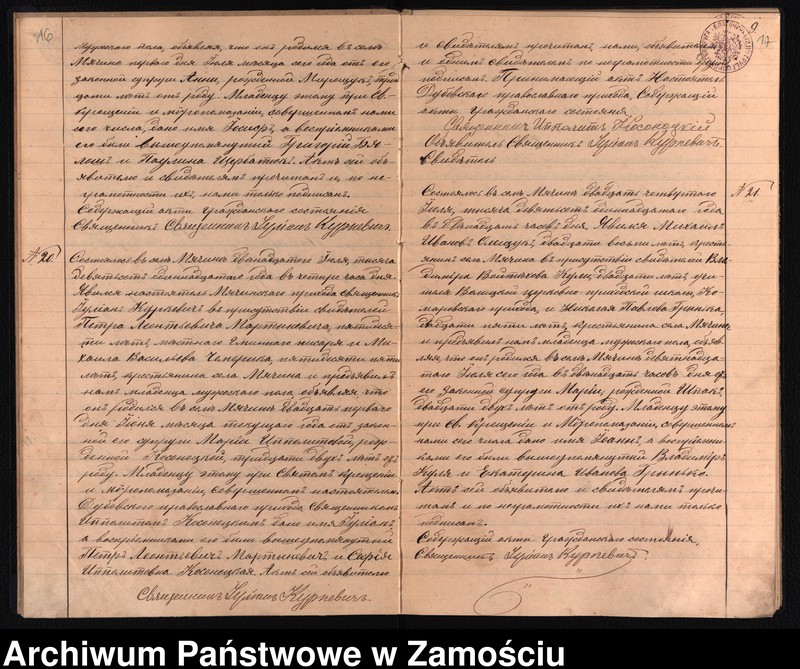 16
мужскаго пола, объявляя, что онъ родился въ селѣ
Мячинѣ перваго дня Іюля мѣсяца сего года отъ его
законной супруги Анны, рожденной три-
дцати лѣтъ отъ роду. Младенцу этому при Св.
Крещеніи и мѵропомазаніи, совершенномъ нами
сего числа, дано имя а воспріемниками
его были вышеупомянутый Григорій
и Паулина Акт сей объ-
явителю и свидѣтелямъ прочитанъ и, по не-
грамотности ихъ, нами только подписанъ.
Содержащій акты гражданскаго состоянія
Священникъ Священникъ Іуліанъ Куркевичъ
№ 20.
Состоялось въ селѣ Мячинѣ двѣнадцатаго Іюля, тысяча
девятьсотъ одиннадцатаго года въ четыре часа дня.
Явился настоятель Мячинскаго прихода священникъ
Іуліанъ Куркевичъ въ присутствіи свидѣтелей
Петра Леонтьевича Мартиневича, пятидеся-
ти лѣтъ, писаря и Ми-
хаила Васильева пятидесяти пяти
лѣтъ, крестьянина села Мячина и предъявилъ
намъ младенца мужескаго пола, объявляя, что
онъ родился въ селѣ Мячинѣ двадцать перваго
дня Іюня мѣсяца текущаго года отъ закон-
ной его супруги Маріи Ипполитовны, рож-
денной Косоноцкой, тридцати двухъ лѣтъ отъ
роду. Младенцу этому при Святомъ Крещеніи
и мѵропомазаніи, совершенномъ настоятелемъ
Дубовскаго православнаго прихода Священникомъ
Ипполитомъ Косоноцкимъ дано имя Іуліанъ,
а воспріемниками его были вышеупомянутый
Петръ Леонтьевичъ Мартиневичъ и Софія
Ипполитовна Косоноцкая. Актъ сей объявителю
Священникъ Іуліанъ Куркевичъ.
9
17
и свидѣтелямъ прочитанъ, нами, объявителемъ
и однимъ свидѣтелемъ по неграмотности
подписанъ. Принимающій актъ Настоятель
Дубовскаго православнаго прихода, Содержащій
акты гражданскаго состоянія,
Священникъ Ипполитъ Косоноцкій
Объявитель Священникъ Іуліанъ Куркевичъ.
Свидѣтель
№ 21.
Состоялось въ селѣ Мячинѣ двадцать четвертаго
Іюля, тысяча девятьсотъ одиннадцатаго года
въ двѣнадцать часовъ дня. Явился Михаилъ
Ивановъ Олещукъ, двадцати восьми лѣтъ, кресть-
янинъ села Мячина въ присутствіи свидѣтелей Вла-
диміра Войтѣхова Куля, двадцати лѣтъ, учи-
теля церковно-приходской школы, Ко-
маровскаго прихода, и Николая Павлова
двадцати пяти лѣтъ, крестьянина села Мячина
и предъявилъ намъ младенца мужескаго пола, объяв-
ляя, что онъ родился въ селѣ Мячинѣ девятнадца-
таго Іюля сего года въ двѣнадцать часовъ дня отъ
его законной супруги Маріи, рожденной Шпакъ,
двадцати двухъ лѣтъ отъ роду. Младенцу этому
при Св. Крещеніи и Мѵропомазаніи, совершенномъ
нами сего числа дано имя Іоаннъ, а воспріемни-
ками его были вышеупомянутый Владиміръ
Куля и Екатерина Иванова Гринько.
Актъ сей объявителю и свидѣтелямъ прочи-
танъ и по неграмотности ихъ нами только
подписанъ.
Содержащій акты гражданскаго состоянія,
Священникъ Іуліанъ Куркевичъ.
Archiwum Państwowe w Zamościu